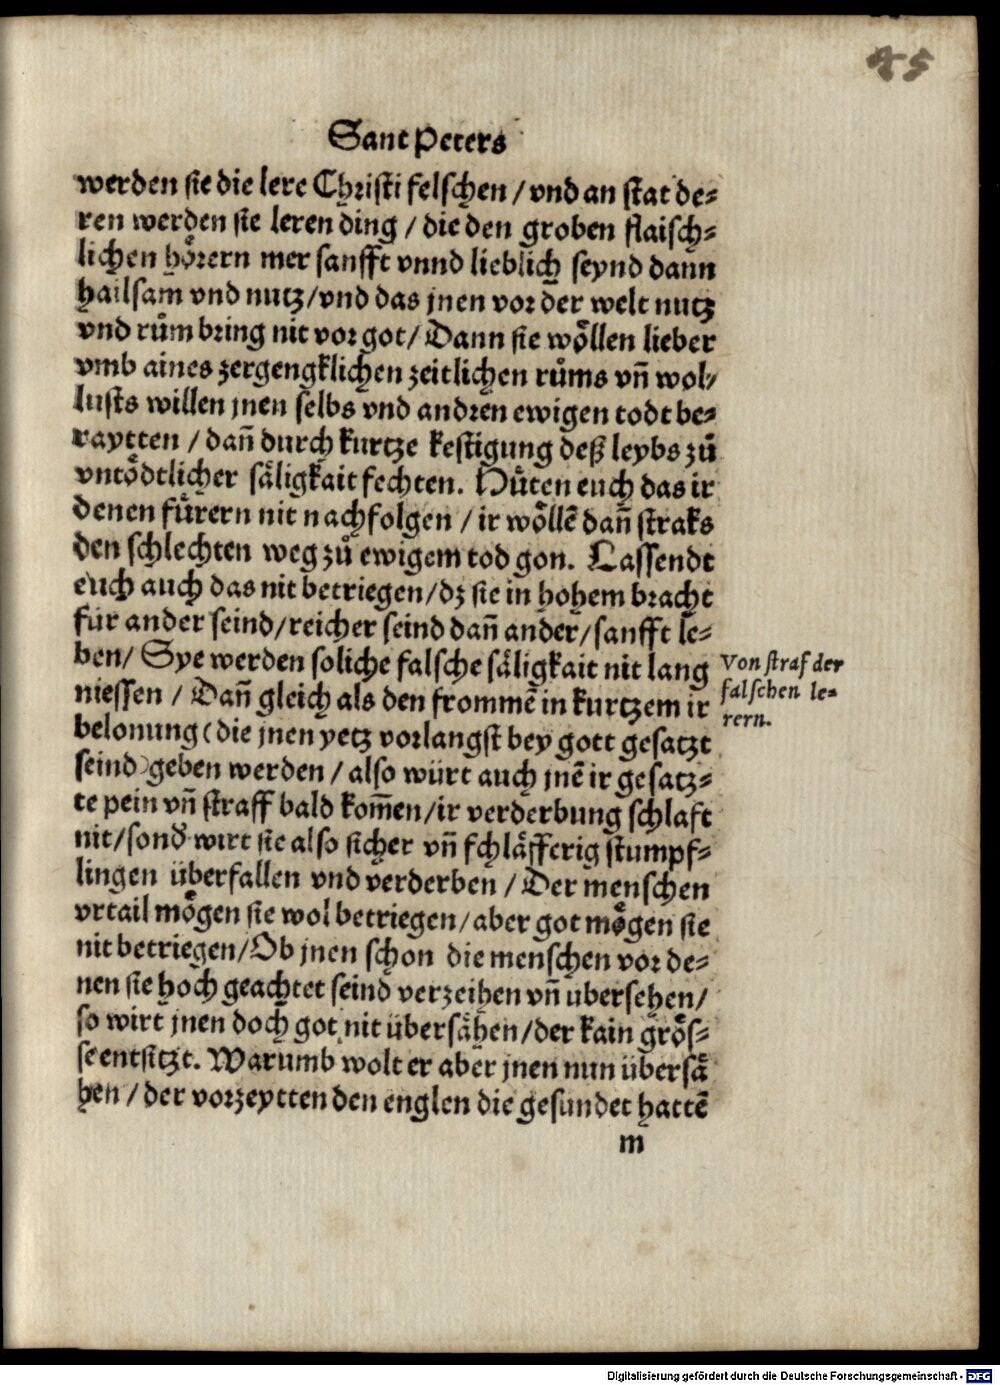 45
Sant Peters
werden sie die lere Christi felschen / vnd an stat de⸗
ren werden sie leren ding / die den groben flaisch⸗
lichen hoͤrern mer sanfft vnnd lieblich seynd dann
hailsam vnd nutz / vnd das jnen vor der welt nutz
vnd ruͦm bring nit vor got / Dann sie woͤllen lieber
vmb aines zergengklichen zeitlichen ruͦms vñ wol⸗
lusts willen jnen selbs vnd andren ewigen todt be⸗
raytten / dañ durch kurtze kestigung deß leybs zuͦ
vntoͤdtlicher saͤligkait fechten. Huͤten euch das ir
denen fuͤrern nit nachfolgen / ir woͤllē dañ straks
den schlechten weg zuͦ ewigem tod gon. Lassendt
euch auch das nit betriegen / dz sie in hohem bracht
für ander seind / reicher seind dañ ander / sanfft le⸗
ben / Sye werden soliche falsche säligkait nit lang
niessen / Dañ gleich als den frommē in kurtzem ir
belonung (die jnen yetz vorlangst bey gott gesatzt
seind) geben werden / also würt auch jnē ir gesatz⸗
te pein vñ straff bald kom̄en / ir verderbung schlaft
nit / sond' wirt sie also sicher vñ schläfferig stumpf⸗
lingen überfallen vnd verderben / Der menschen
vrtail moͤgen sie wol betriegen / aber got moͤgen sie
nit betriegen / Ob jnen schon die menschen vor de⸗
nen sie hoch geachtet seind verzeihen vñ übersehen /
so wirt jnen doch got nit übersähen / der kain groͤs⸗
se entsitzt. Warumb wolt er aber jnen nun übersaͤ
hen / der vorzeytten den englen die gesundet hattē
m
Von straf der
falschen le⸗
rern.
Digitalisierung gefördert durch die Deutsche Forschungsgemeinschaft - DFG